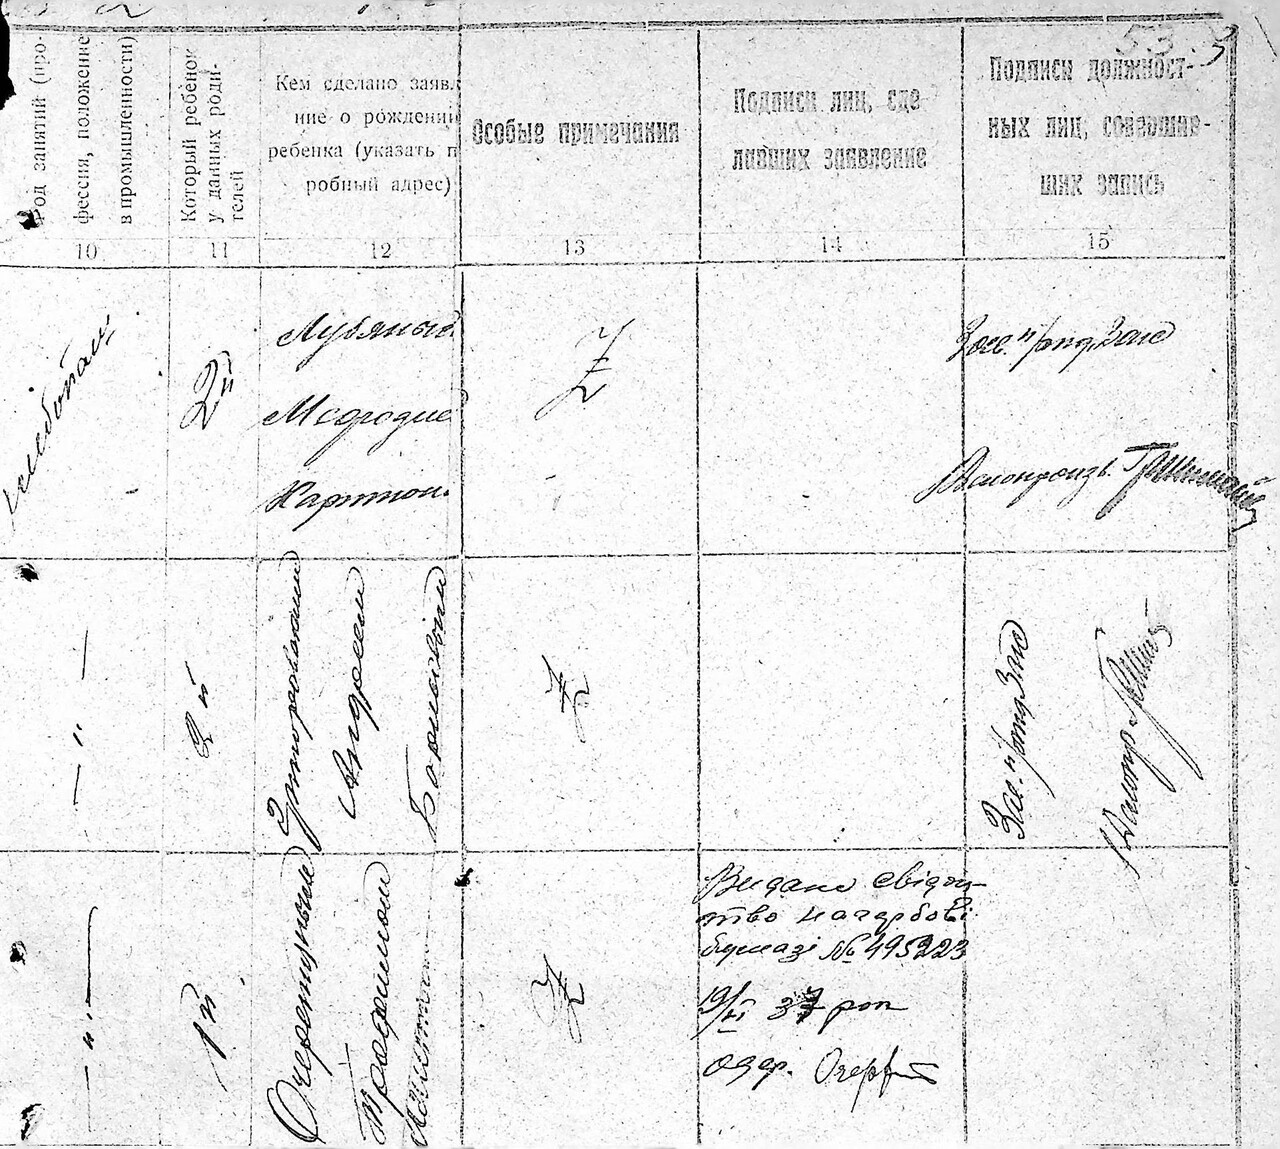 53
Род занятий (про-
фессия, положение
в промышленности)
Который ребенок
у данных роди-
телей
Кем сделано заявл
ние о рождении
ребенка (указать п
робный адрес)
Особые примечания
Подписи лиц, сде
лавших заявление
Подписи должност-
ных лиц, совершив-
ших запись
10
11
12
13
14
15
2й
Лубяный
Мефодие
Харитон.
Z
Зав. п/отд. Загс
Делопроизв.
— " —
3й
Андреем
Z
Зав. п/отд Загс
Делопр
— " —
1й
Очеретяный
Трофимом
Z
Видано свідоц-
тво на гербові
бумазі № 495223
37 рок
одер. Очер